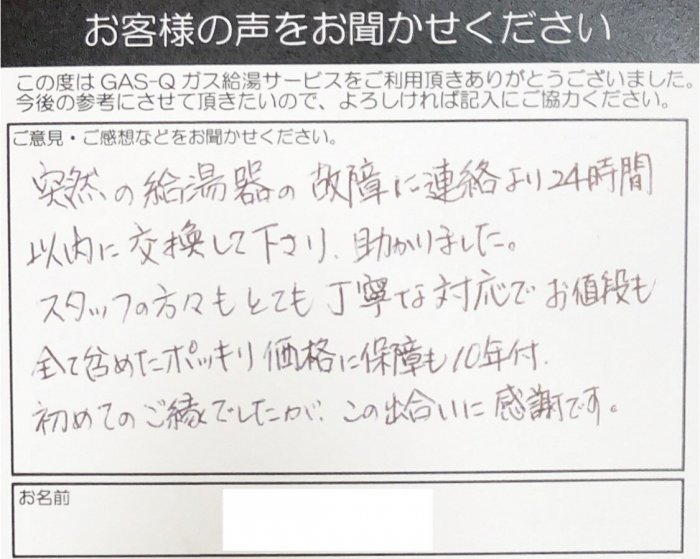 お客様の声をお聞かせください
この度はGAS-Qガス給湯サービスをご利用頂きありがとうございました。
今後の参考にさせて頂きたいので、よろしければ記入にご協力ください。
ご意見・ご感想などをお聞かせください。
突然の給湯器の故障に連絡より24時間
以内に交換して下さり、助かりました。
スタッフの方々もとても丁寧な対応でお値段も
全て含めたポッキリ価格に保障も10年付、
初めてのご縁でしたが、この出合いに感謝です。
お名前